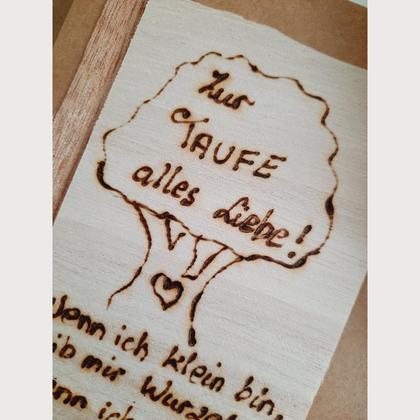 Zur
TAUFE
alles Liebe!
Wenn ich klein bin,
gib mir
ich